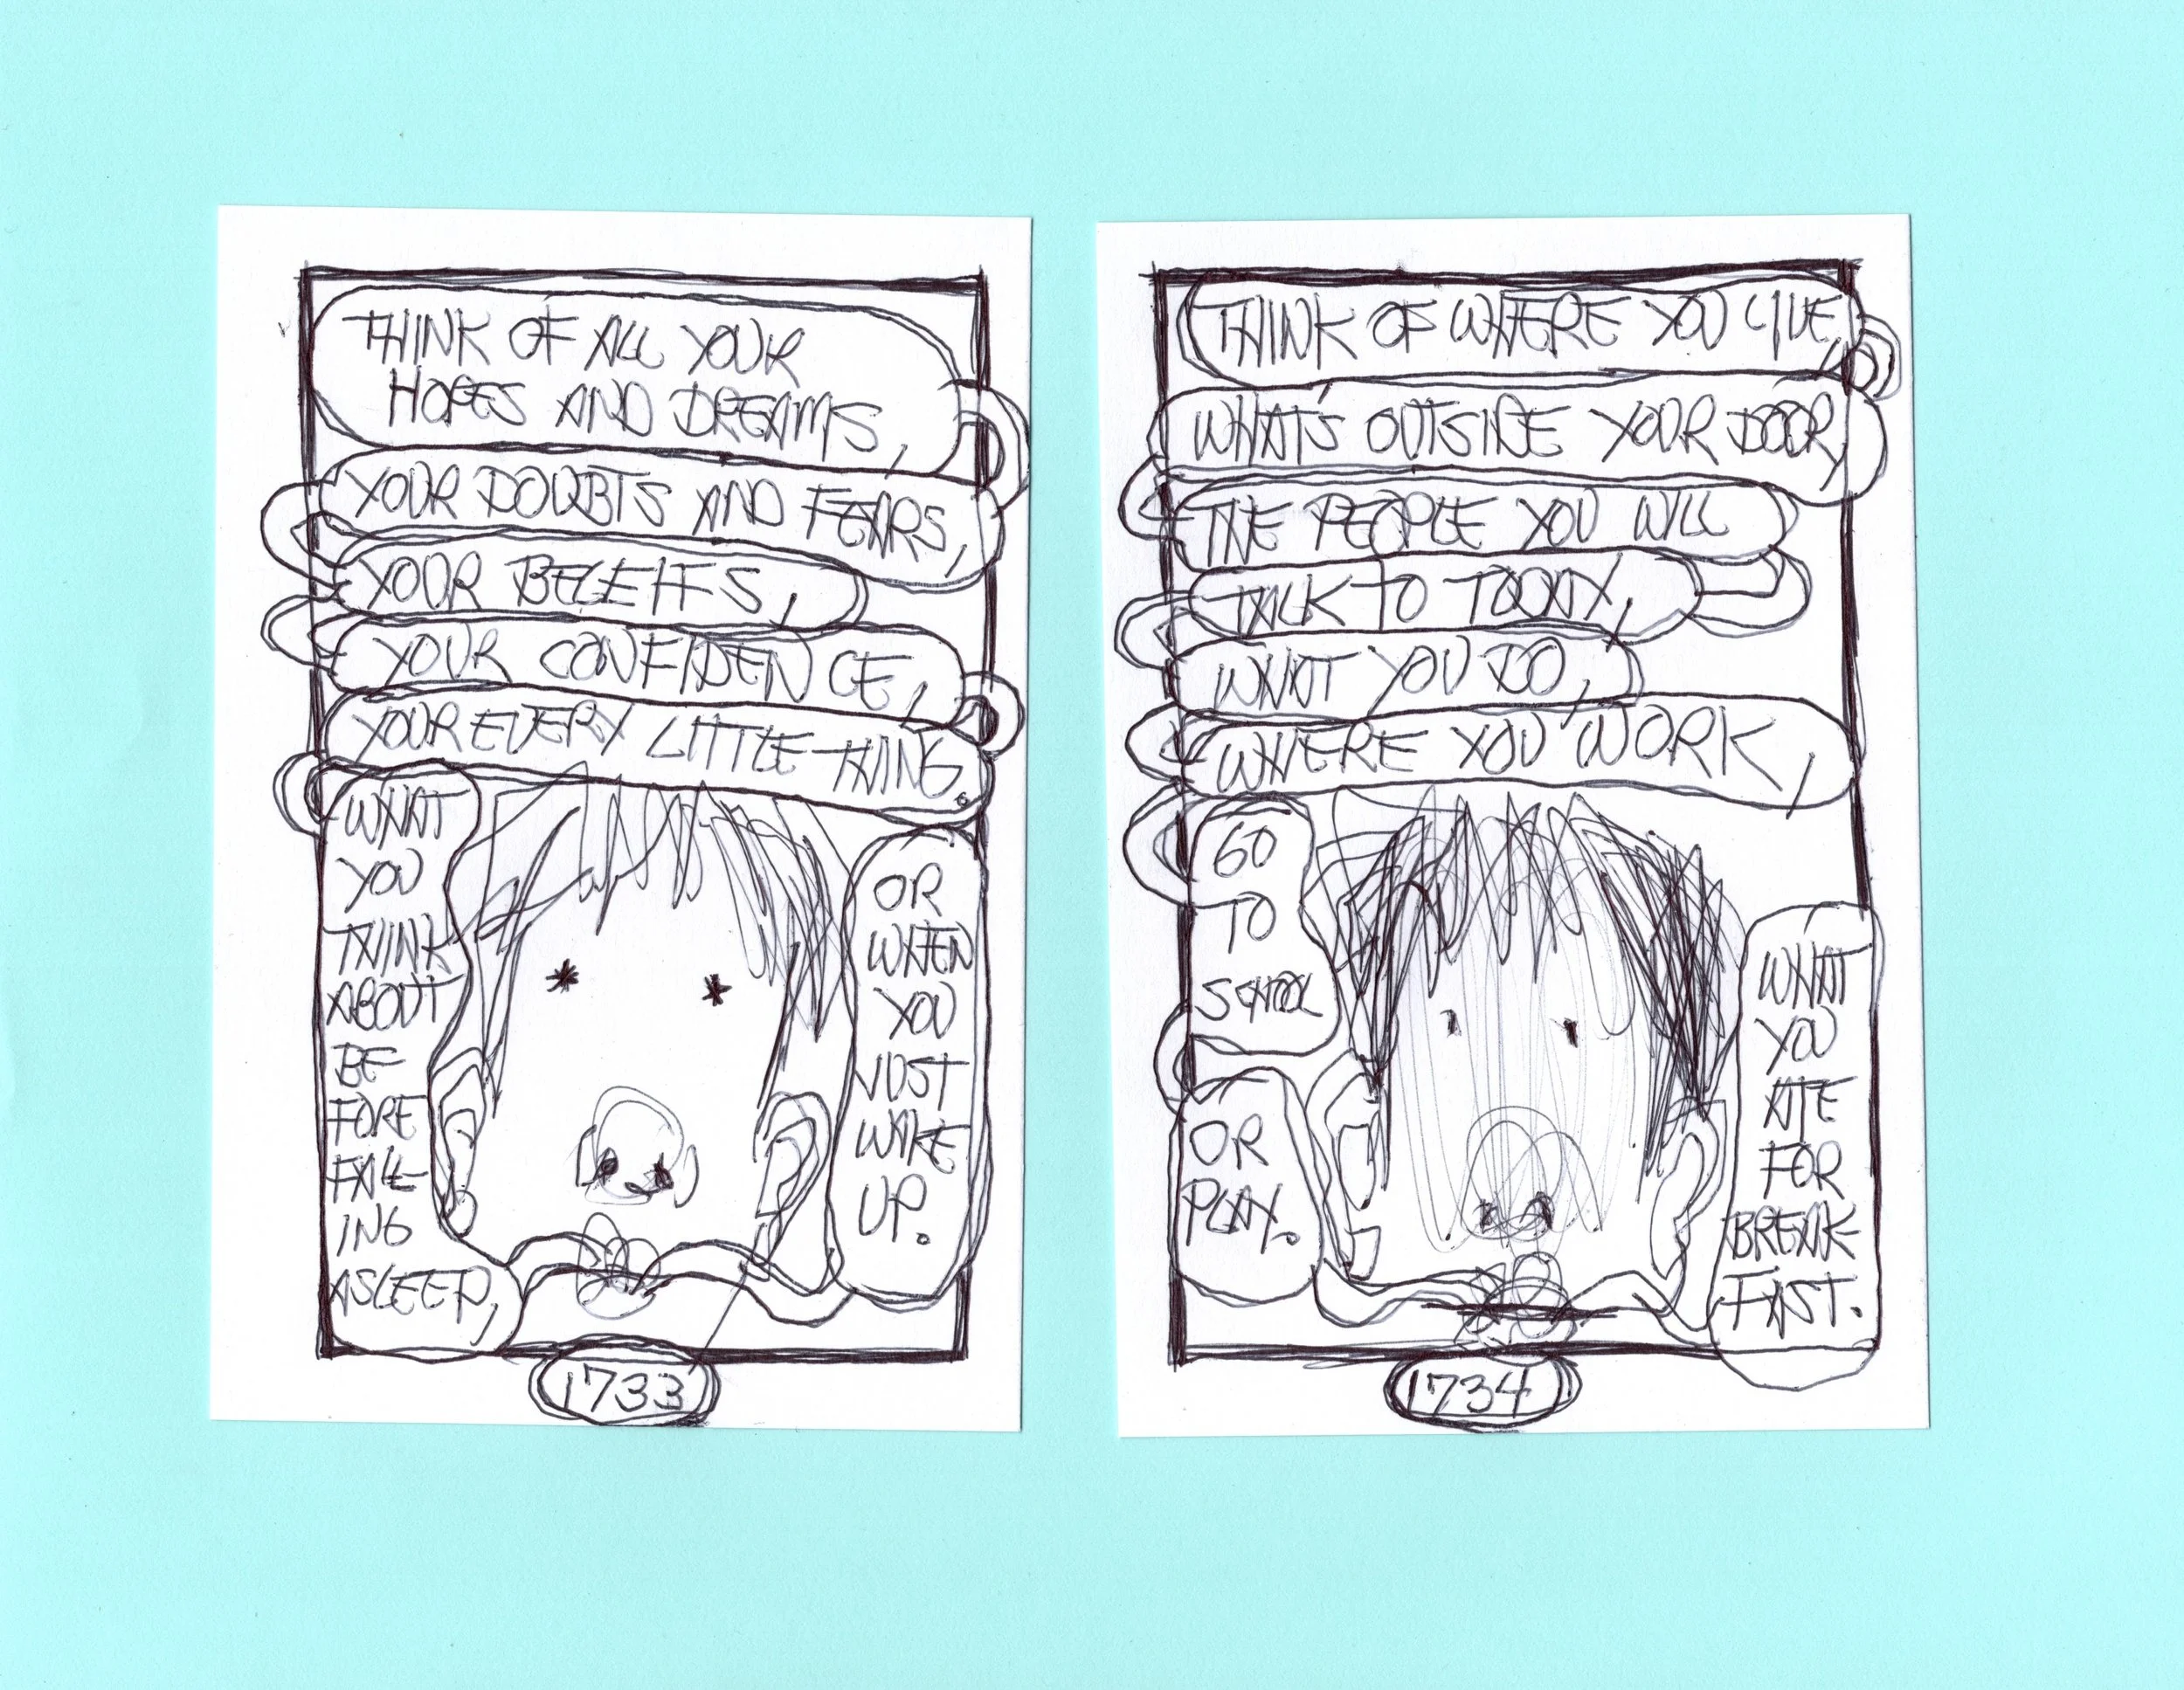 THINK OF ALL YOUR
HOPES AND DREAMS,
YOUR DOUBTS AND FEARS,
YOUR BELEIFS,
YOUR CONFIDENCE,
YOUR EVERY LITTLE THING.
WHAT
YOU
THINK
ABOUT
BE
FORE
FALL-
ING
ASLEEP,
OR
WHEN
YOU
JUST
WAKE
UP.
1733
THINK OF WHERE YOU LIVE,
WHAT'S OUTSIDE YOUR DOOR,
THE PEOPLE YOU WILL
TALK TO TODAY,
WHAT YOU DO,
WHERE YOU WORK,
GO
TO
SCHOOL
OR
PLAY.
WHAT
YOU
ATE
FOR
BREAK-
FAST.
1734